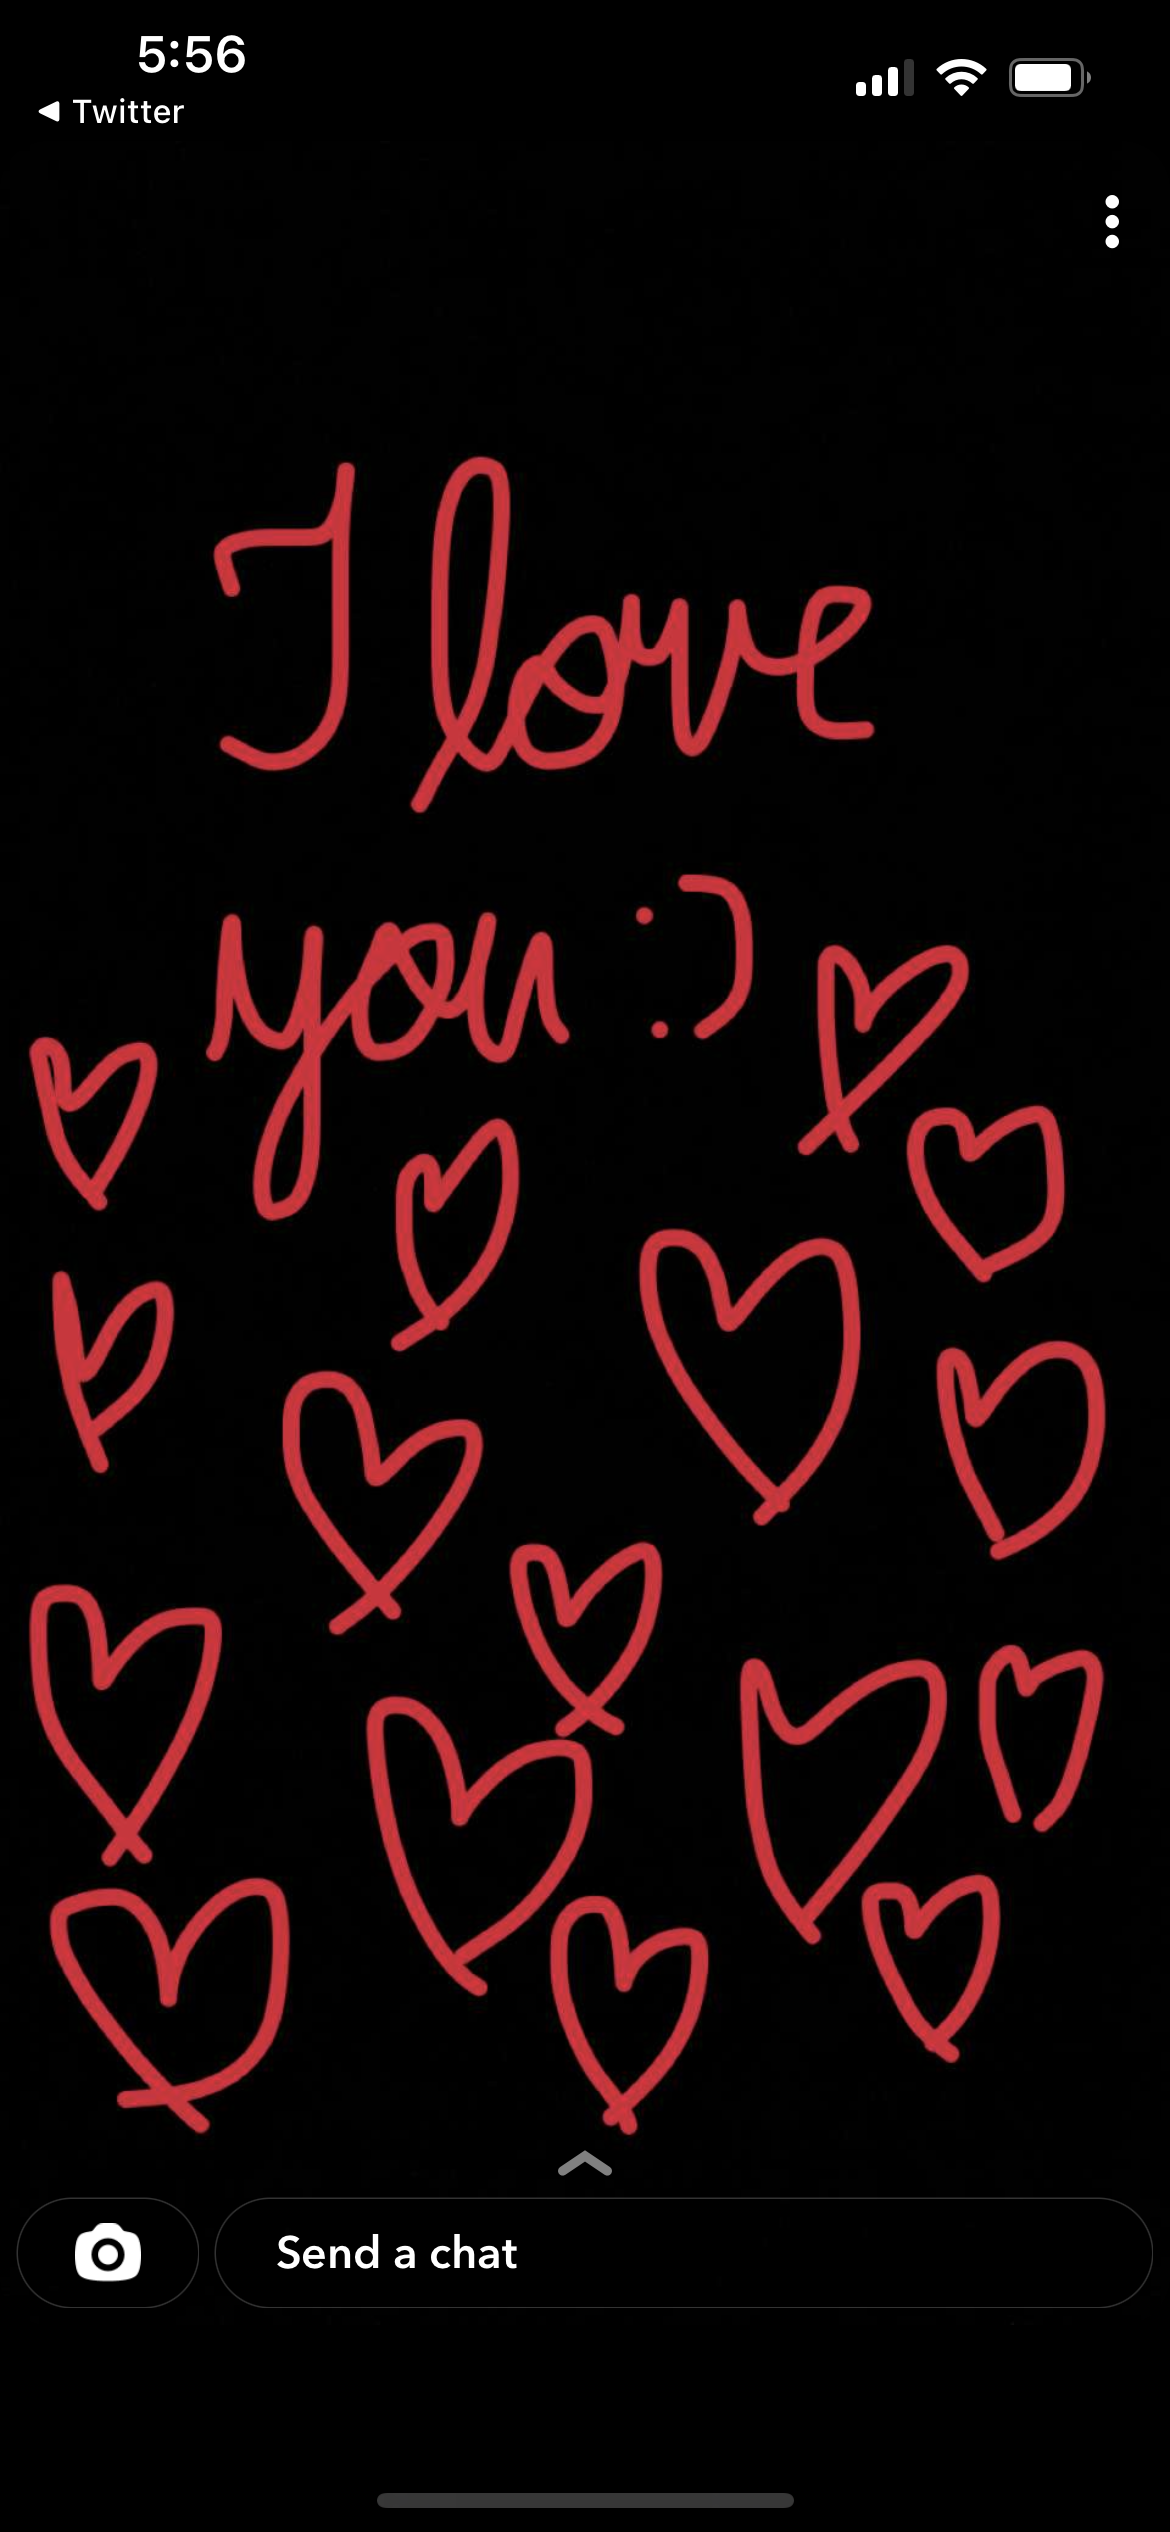 5:56
◀ Twitter
I love
you :)
Send a chat